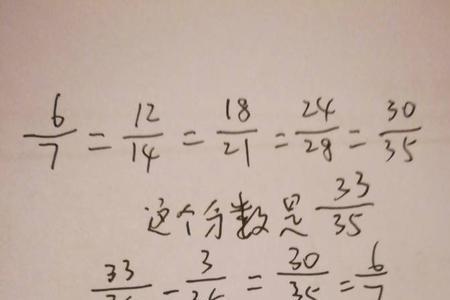 6/7 = 12/14 = 18/21 = 24/28 = 30/35
这个分数是 33/35
33/35 - 3/35 = 30/35 = 6/7